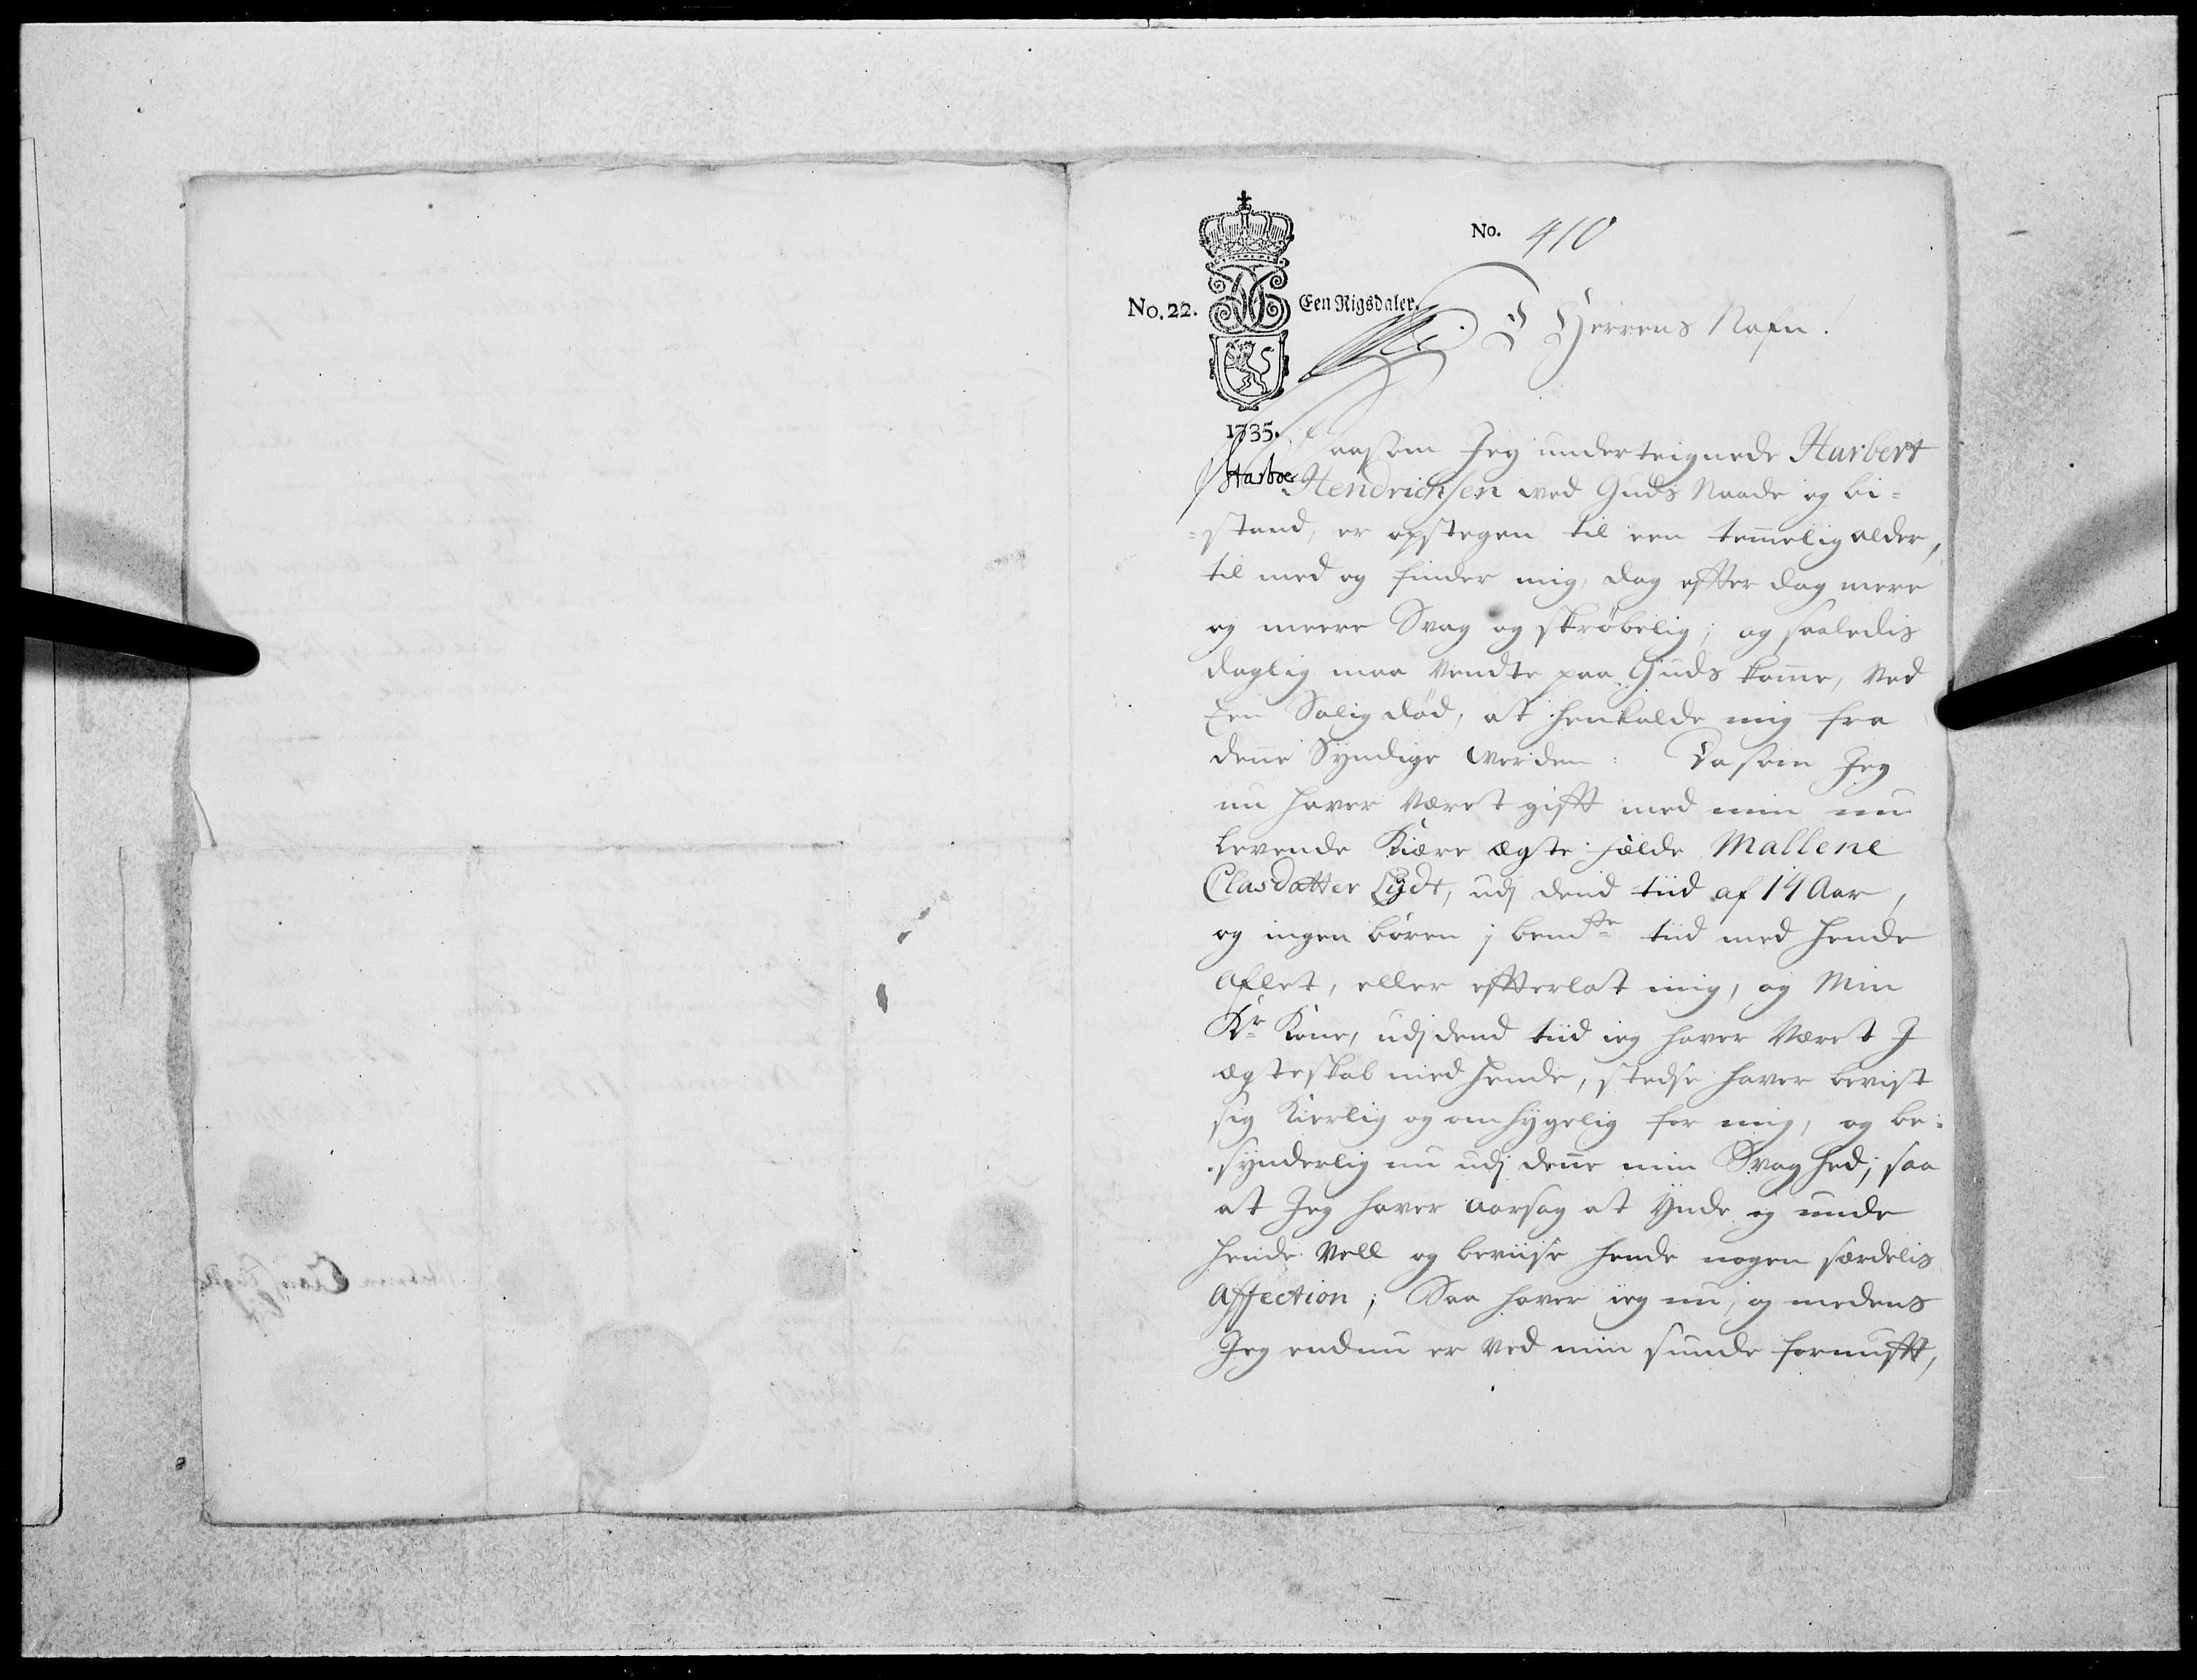 No. 410
No. 22. Een Rigsdaler.
I Herrens Nafn.
1735.
Saasom Jeg underteignede Harbert
Harboe Hendrichsen ved Guds Naade og bi=
=stand, er opstegen til een temelig alder,
til med og finder mig, dag efter dag mere
og meere Svag og skröbelig; og saaledis
daglig maa vendte paa Guds kome, Ved
Een Salig död, at henkalde mig fra
dene Syndige verden: Da som Jeg
nu haver været gift med min nu
levende Kiære ægte: hælde Mallene
Clasdatter Lydt, udj dend tiid af 14 Aar,
og ingen börn j bemte tiid med hende
aflet, eller efterlat mig, og Min
Kr Kone, udj dend tiid ieg haver Været I
ægteskab med hende, stedse haver bevist
sig Kierlig og omhÿgelig for mig, og be=
=sÿnderlig nu udj dene min Svaghed; saa
at Jeg haver aarsag at ÿnde og unde
hende Vell og beviise hende nogen særdelis
Affection; Saa haver ieg nu, og medens
Jeg endnu er ved min sunde fornuft,